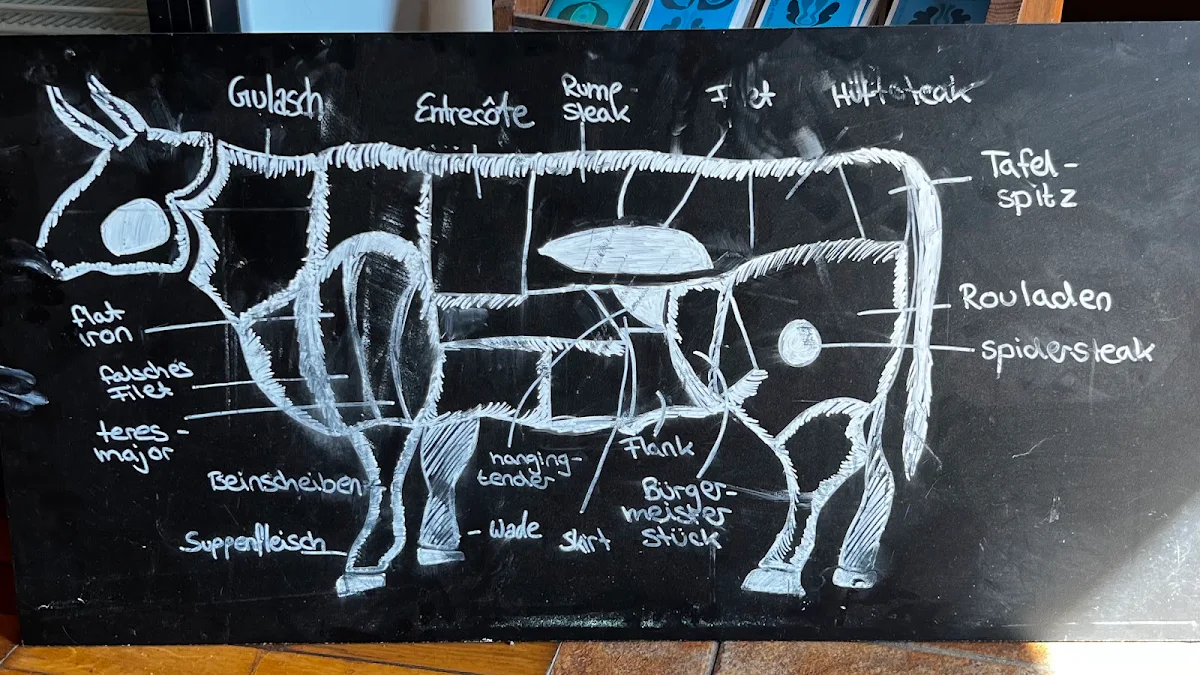 Gulasch
Entrecôte
Rump-
steak
Filet
Hüftsteak
Tafel-
spitz
Rouladen
spidersteak
flat
iron
falsches
Filet
teres-
major
Beinscheiben
Suppenfleisch
hanging-
tender
- Wade
Skirt
Flank
Bürger-
meister
stück